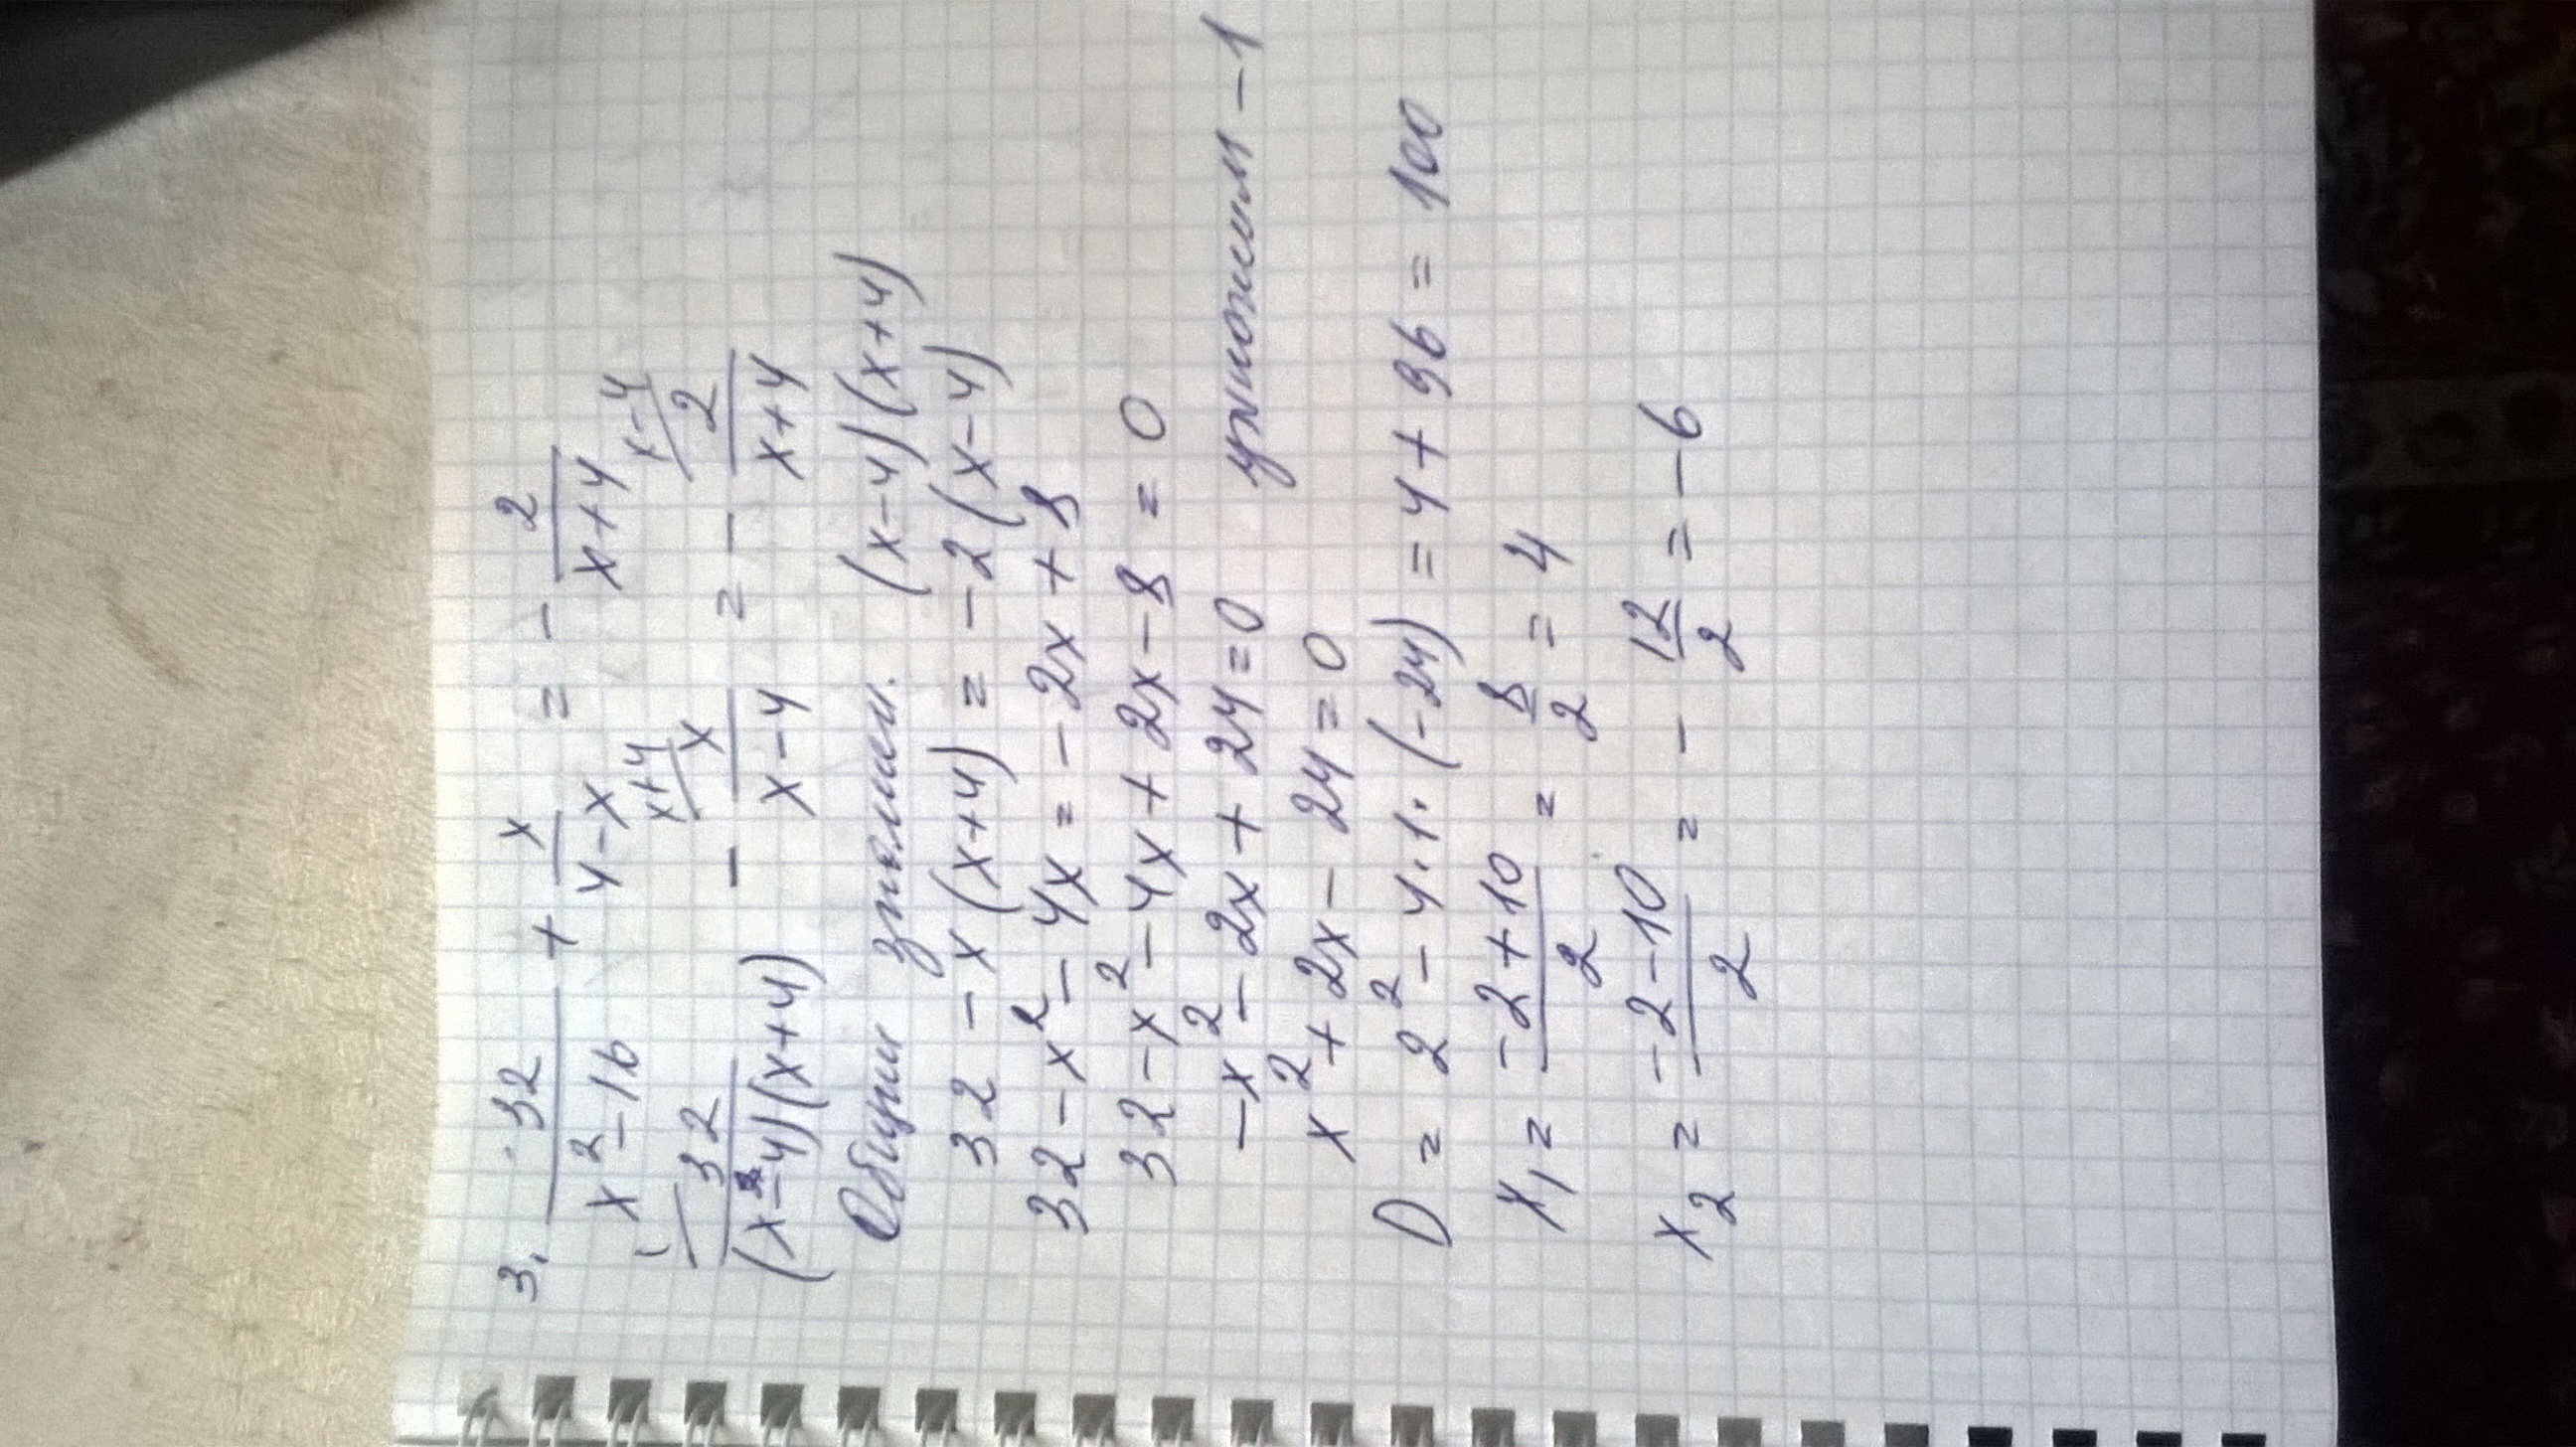 3. 32/(x²-16) + x/(4-x) = - 2/(x+4)
32/((x-4)(x+4)) - x/(x-4) = - 2/(x+4)
x+4 x-4
Общий знамен. (x-4)(x+4)
32 - x(x+4) = -2(x-4)
32 - x² - 4x = -2x + 8
32 - x² - 4x + 2x - 8 = 0
-x² - 2x + 24 = 0 умножим -1
x² + 2x - 24 = 0
D = 2² - 4·1·(-24) = 4 + 96 = 100
x₁ = (-2+10)/2 = 8/2 = 4
x₂ = (-2-10)/2 = - 12/2 = -6